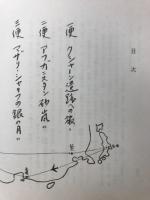 目次
一便 クシャーン遺跡への旅・
二便 アフガニスタン砂嵐の
三便 マザリ・シャリフの銀の月・